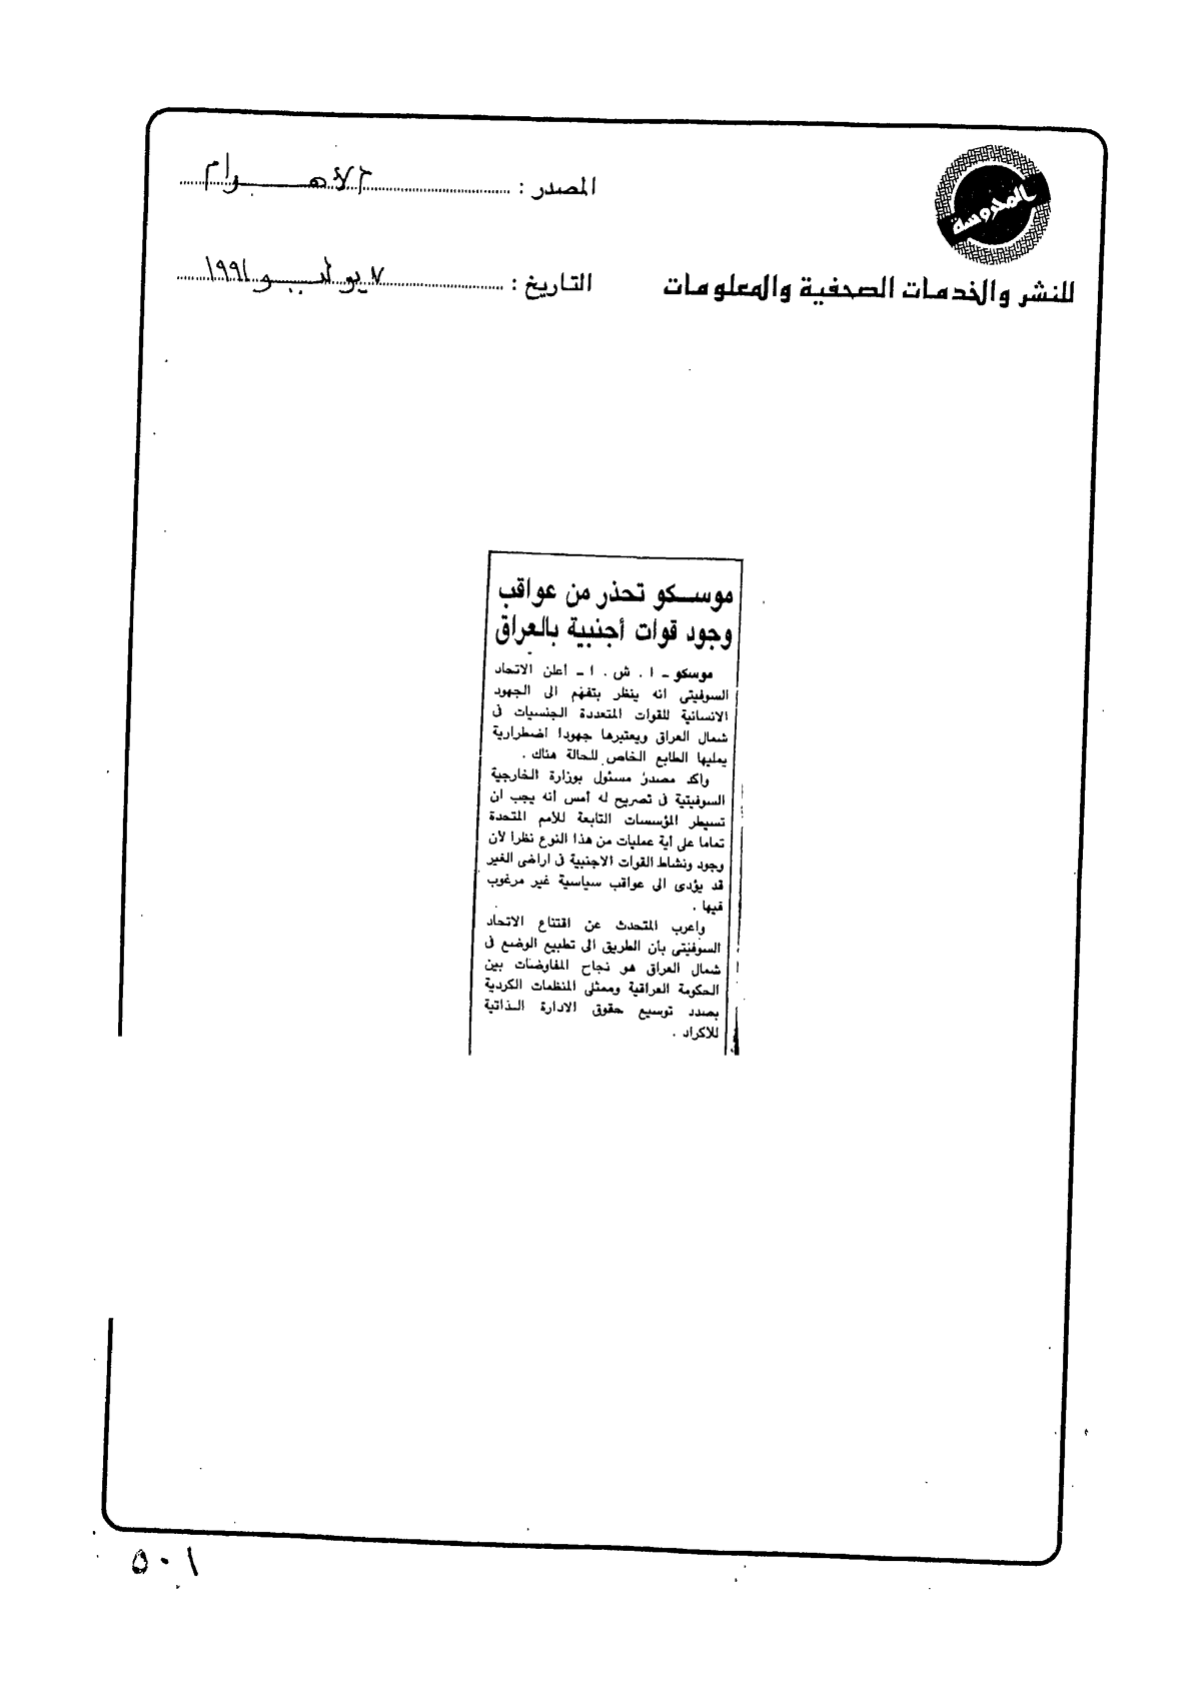 المحروسة
للنشر والخدمات الصحفية والمعلومات
المصدر : الأهرام
التاريخ : ٧ يوليو ١٩٩١
موسكو تحذر من عواقب
وجود قوات أجنبية بالعراق
موسكو ـ ا . ش . ا ـ أعلن الاتحاد
السوفيتى انه ينظر بتفهم الى الجهود
الانسانية للقوات المتعددة الجنسيات فى
شمال العراق ويعتبرها جهودا اضطرارية
يمليها الطابع الخاص للحالة هناك .
واكد مصدر مسئول بوزارة الخارجية
السوفيتية فى تصريح له أمس أنه يجب ان
تسيطر المؤسسات التابعة للأمم المتحدة
تماما على أية عمليات من هذا النوع نظرا لأن
وجود ونشاط القوات الاجنبية فى اراضى الغير
قد يؤدى الى عواقب سياسية غير مرغوب
فيها .
واعرب المتحدث عن اقتناع الاتحاد
السوفيتى بأن الطريق الى تطبيع الوضع فى
شمال العراق هو نجاح المفاوضات بين
الحكومة العراقية وممثلى المنظمات الكردية
بصدد توسيع حقوق الادارة الذاتية
للاكراد .
٥٠١